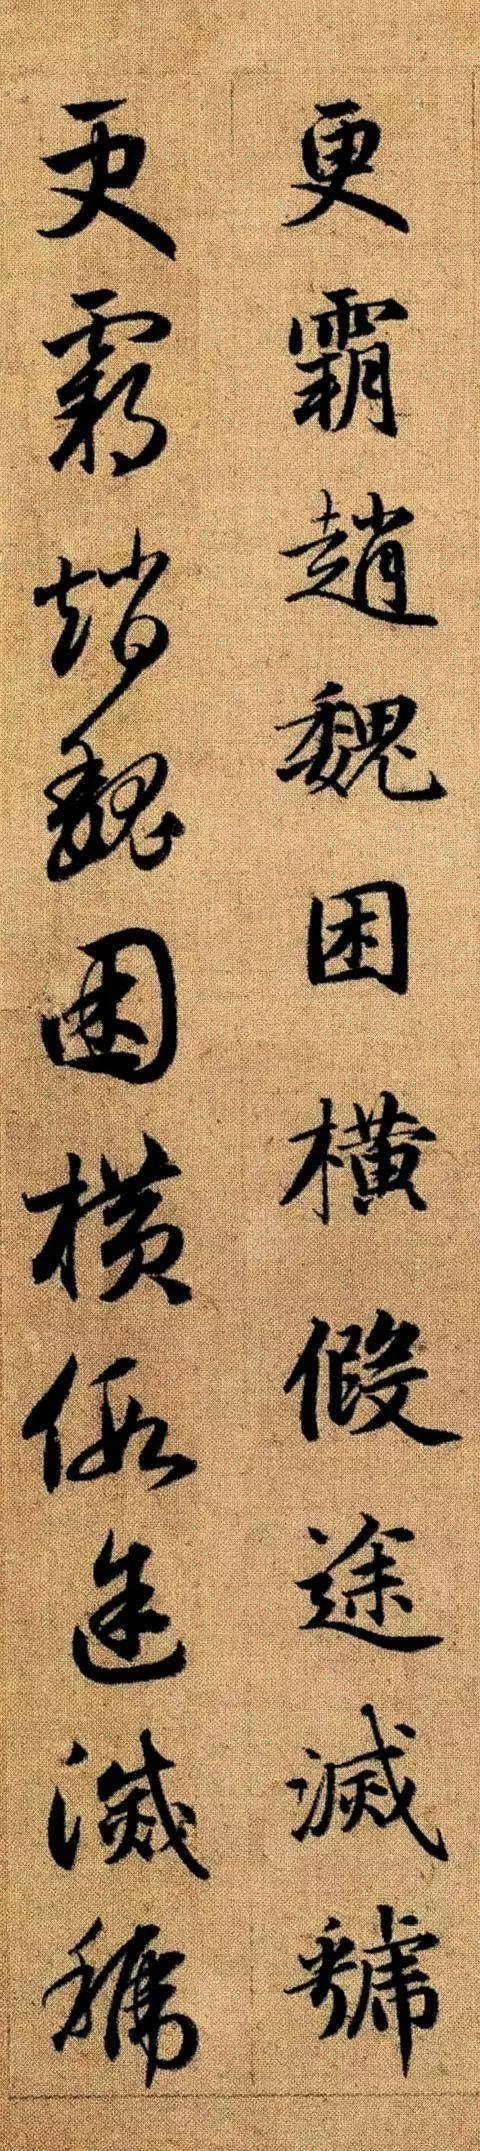 更霸趙魏困橫假途滅虢
更霸趙魏困橫假途滅虢